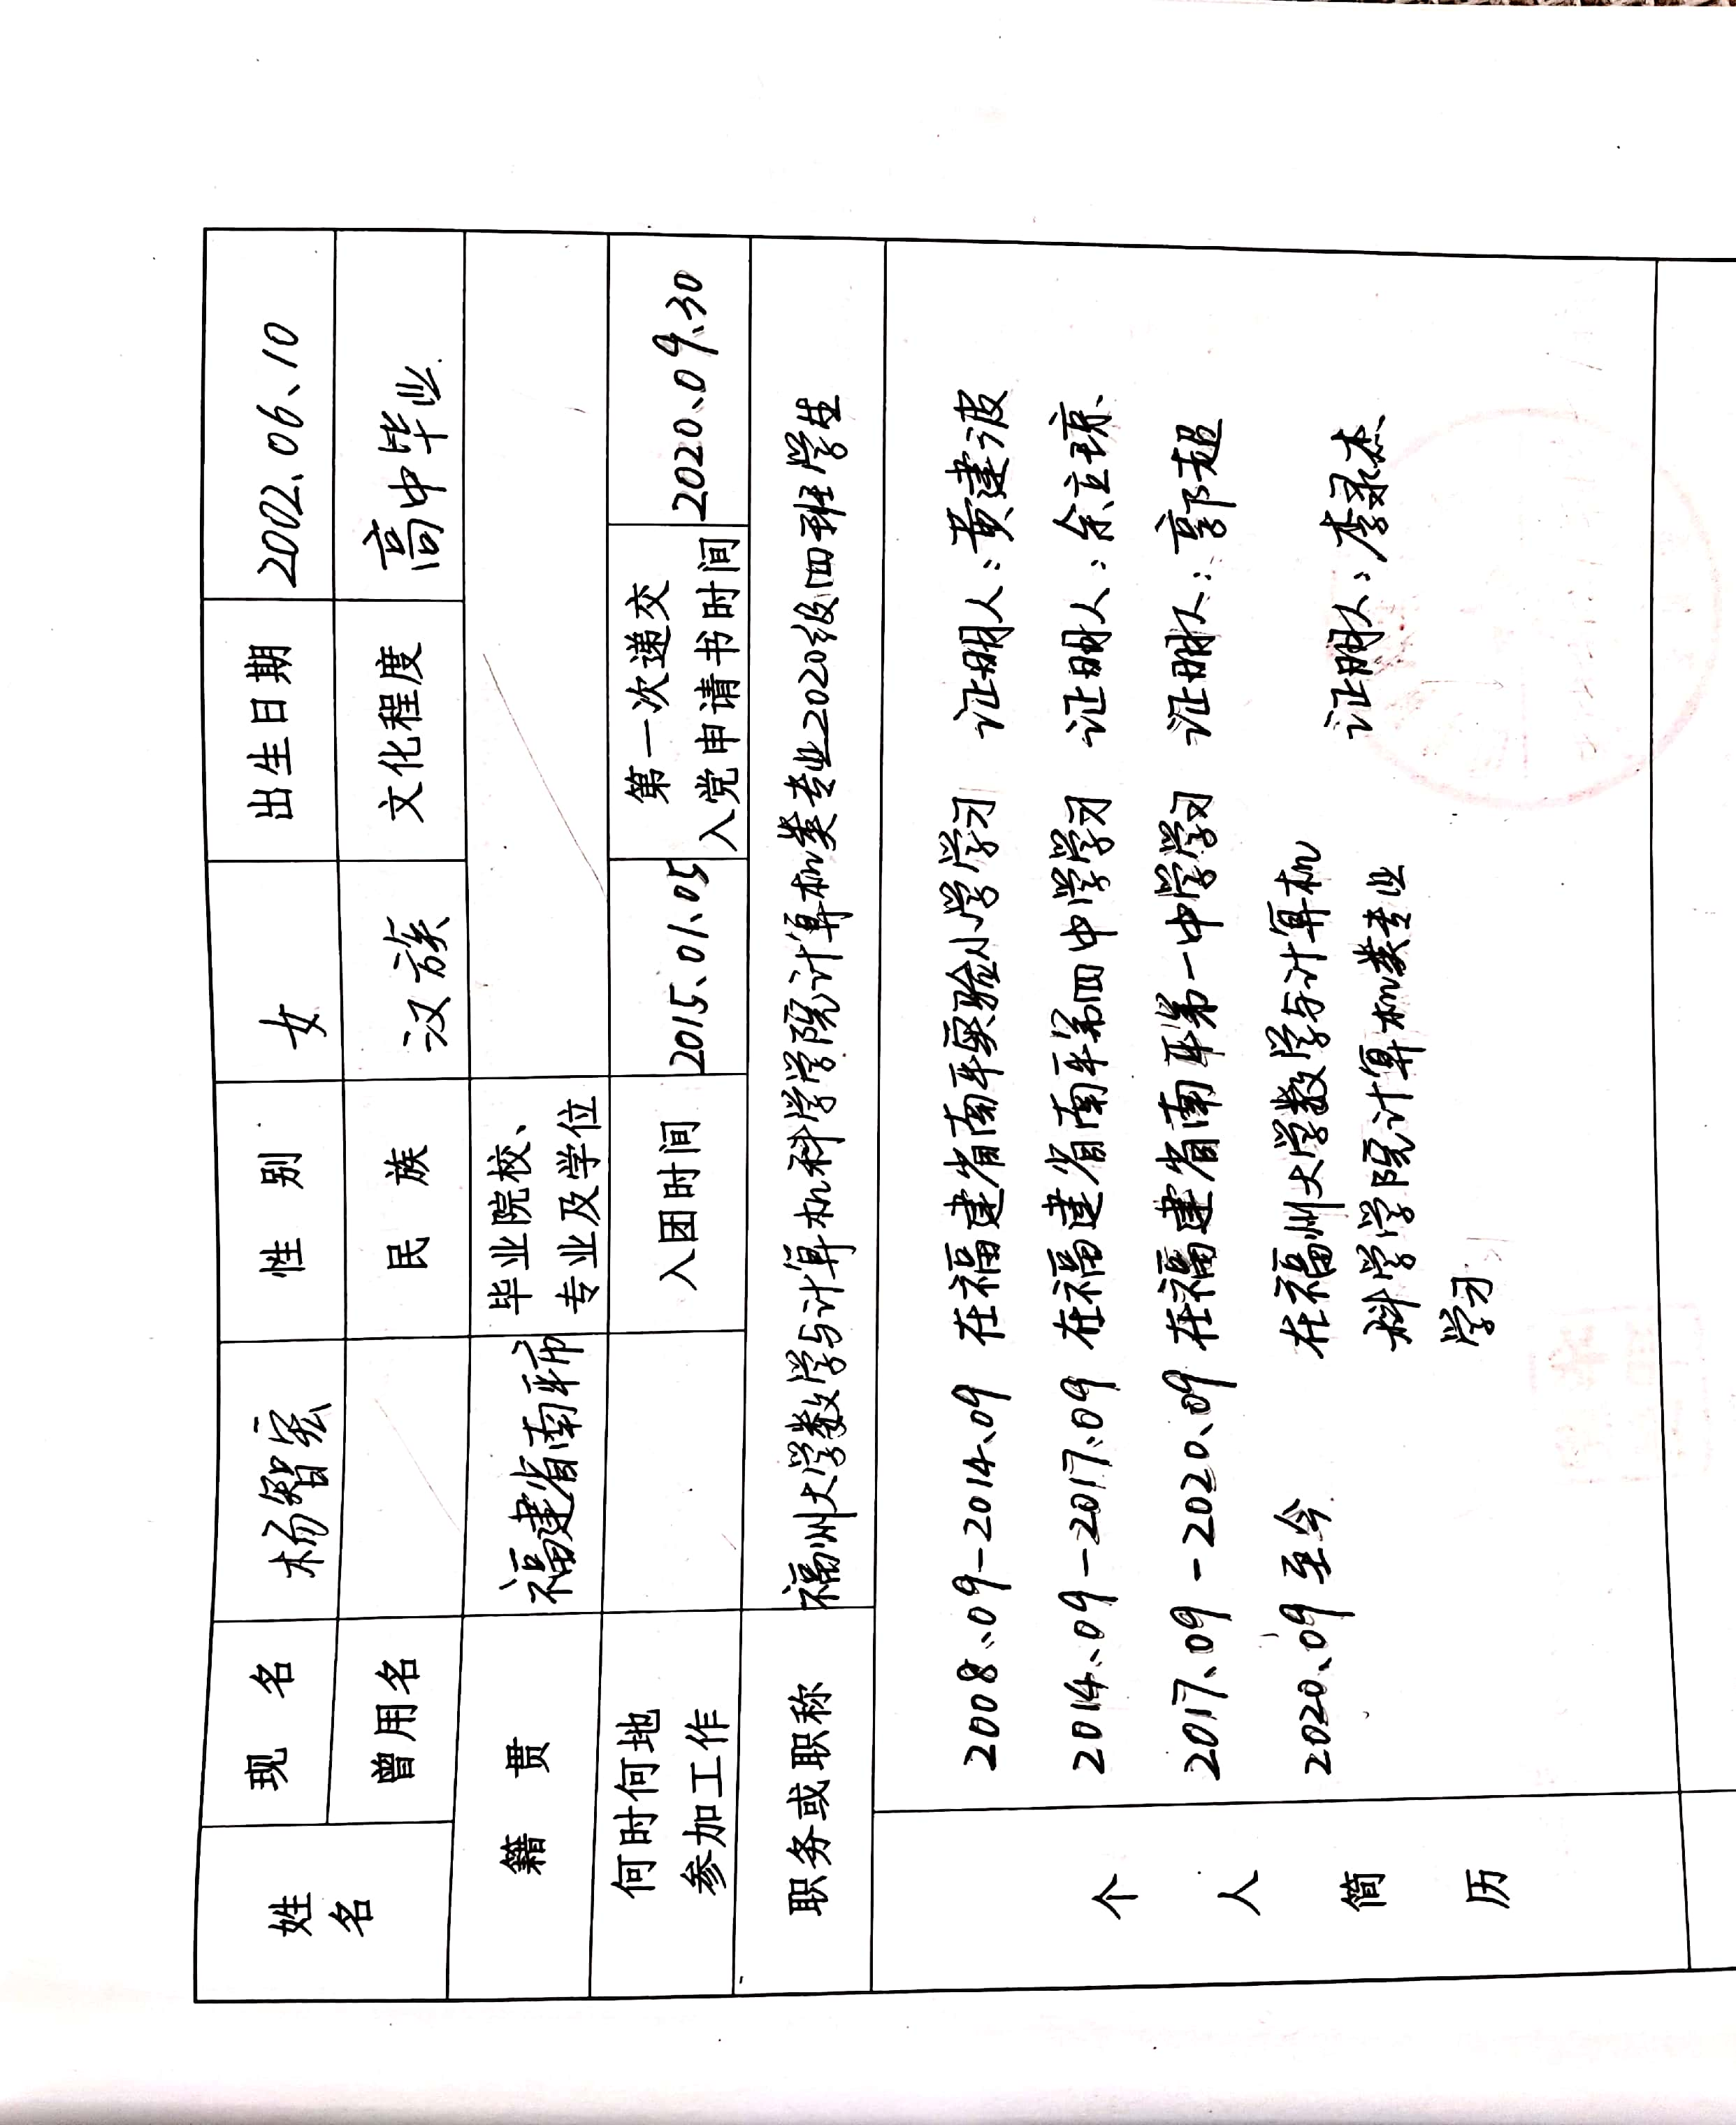 姓名 现名 杨智宏 性别 女 出生日期 2002.06.10
曾用名 民族 汉族 文化程度 高中毕业
籍贯 福建省南平市 毕业院校、
专业及学位
何时何地
参加工作 入团时间 2015.01.05 第一次递交
入党申请书时间 2020.09.30
职务或职称 福州大学数学与计算机科学学院计算机类专业2020级四班学生
个人简历
2008.09-2014.09 在福建省南平实验小学学习 证明人:黄建波
2014.09-2017.09 在福建省南平第四中学学习 证明人:余立琼
2017.09-2020.09 在福建省南平第一中学学习 证明人:郭超
2020.09至今 在福州大学数学与计算机
科学学院计算机类专业 证明人:李录杰
学习